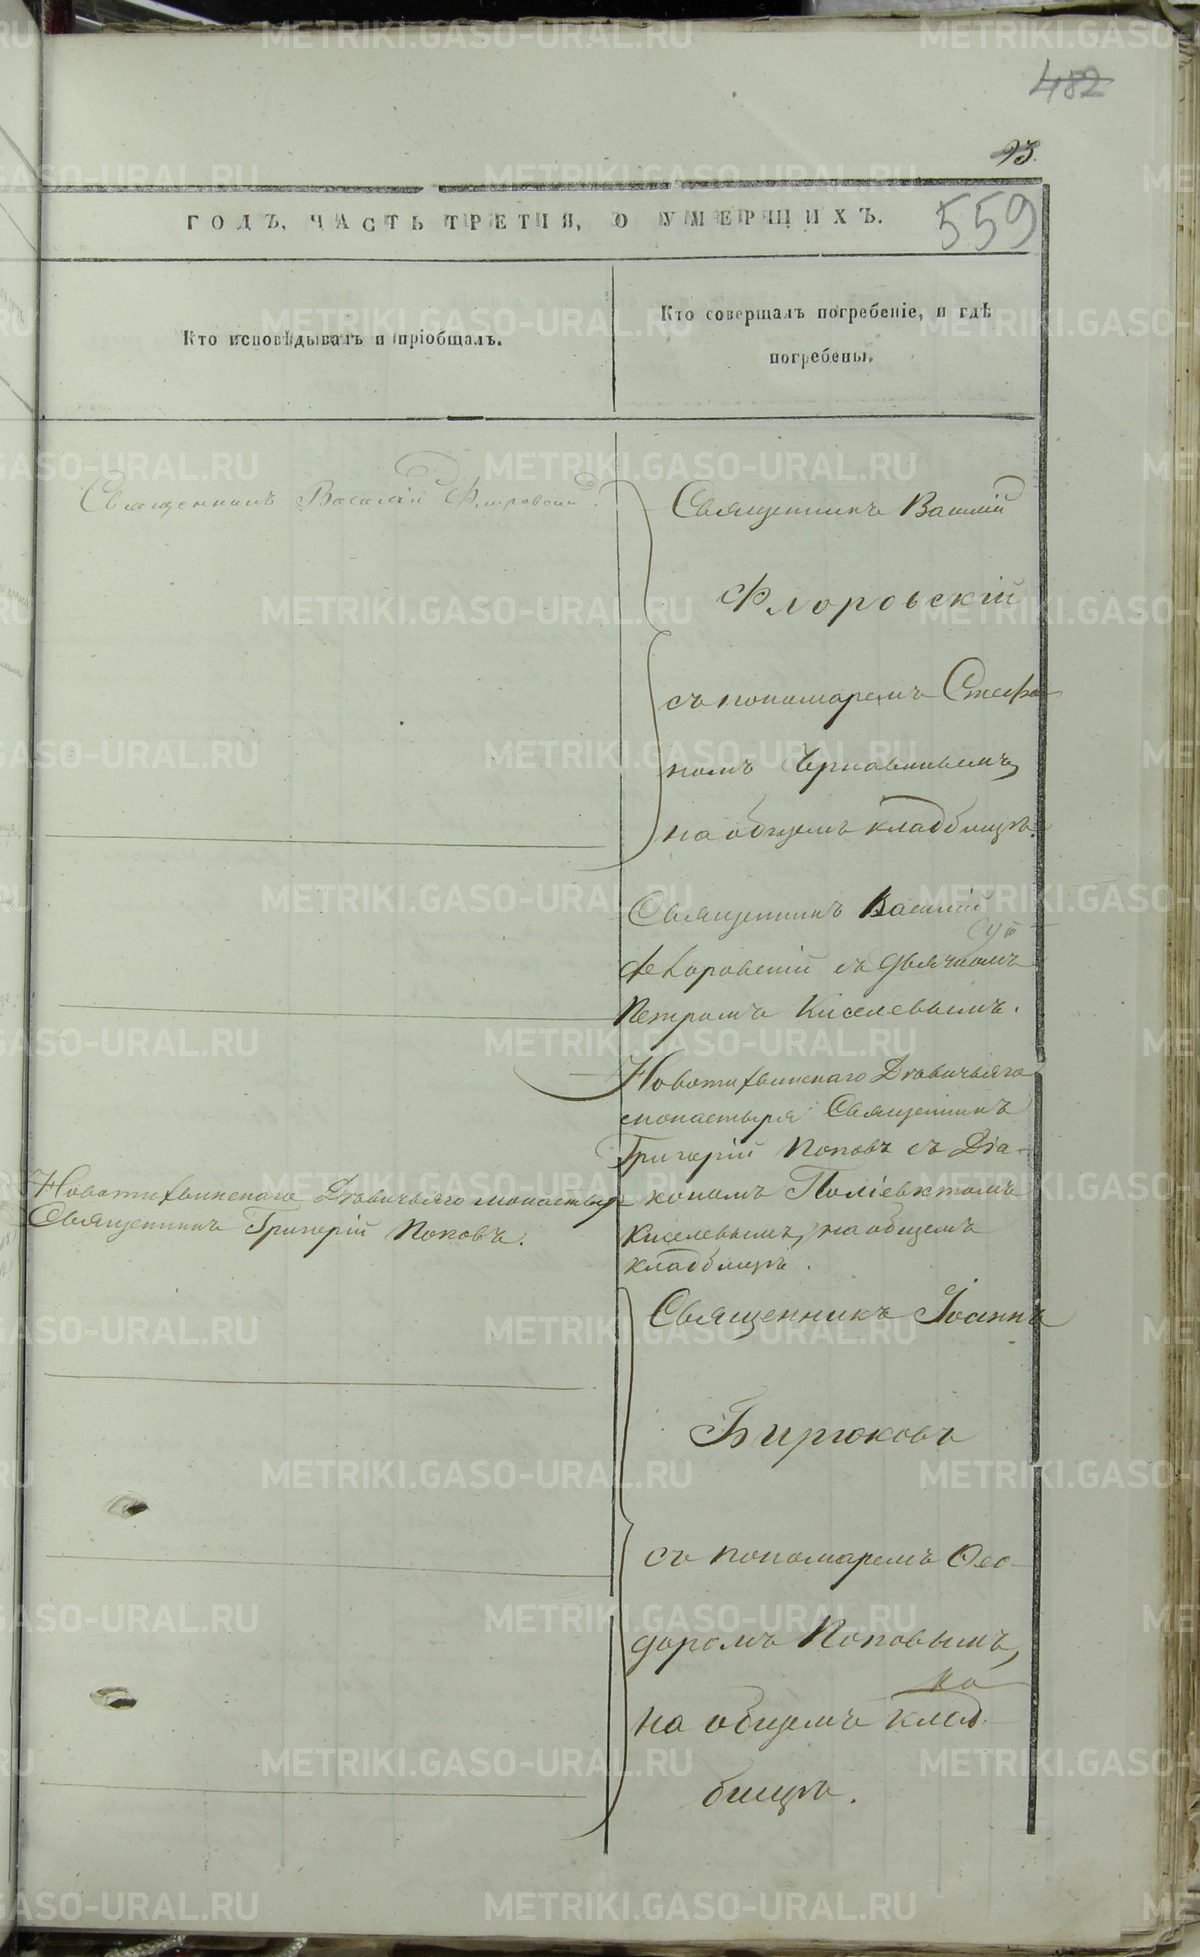 482
93.
ГОДЪ, ЧАСТЬ ТРЕТІЯ, О УМЕРШИХЪ.
559
Кто исповѣдывалъ и пріобщалъ.
Кто совершалъ погребеніе, и гдѣ
погребены.
Священникъ Василій Флоровскій.
Священникъ Василій
Флоровскій
съ пономаремъ Стефа-
номъ Чернавинымъ,
на общемъ кладбищѣ.
Священникъ Василій
Флоровскій съ дьячкомъ
Петромъ Киселевымъ.
Новотихвинскаго Дѣвичьяго
монастыря Священникъ
Григорій Поповъ съ Діа-
кономъ Поліевктомъ
Киселевымъ, на общемъ
кладбищѣ.
Новотихвинскаго Дѣвичьяго монастыря
Священникъ Григорій Поповъ.
Священникъ Іоаннъ
Бирюковъ
съ пономаремъ Ѳео-
доромъ Поповымъ,
на общемъ клад-
бищѣ.
METRIKI.GASO-URAL.RU